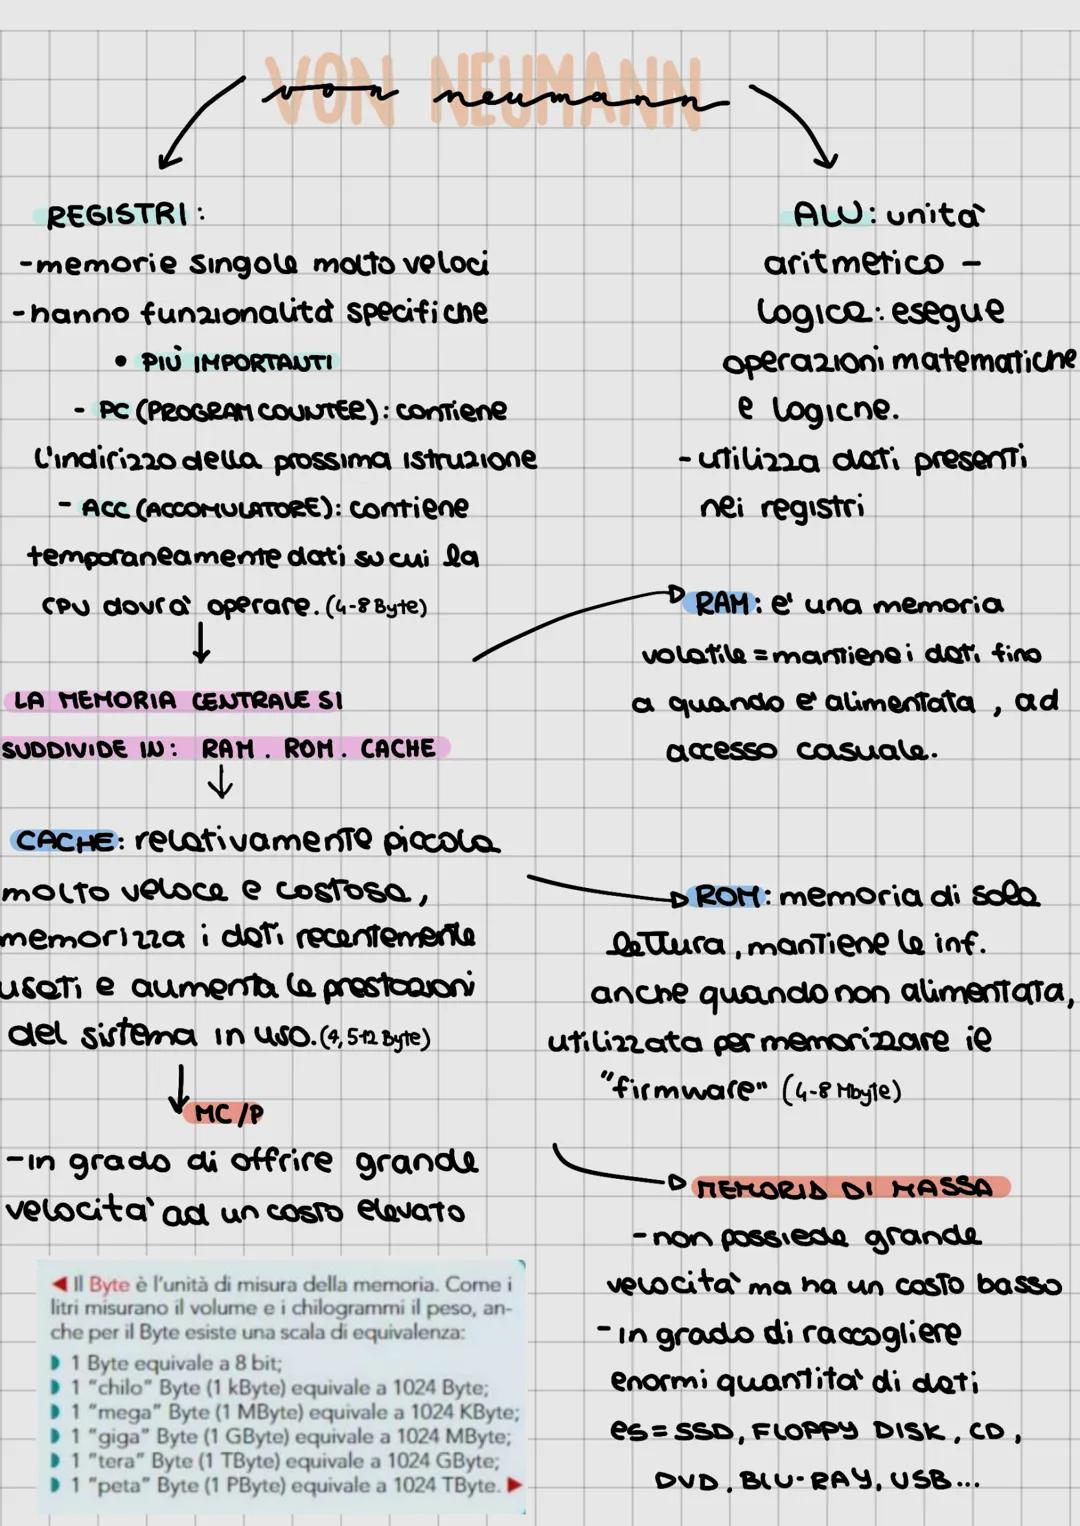 VON NEUMANN
von neumann
REGISTRI:
-memorie singole molto veloci
-hanno funzionalità specifiche
• PIÙ IMPORTANTI
- PC (PROGRAM COUNTER): contiene
l'indirizzo della prossima istruzione
- ACC (ACCOMULATORE): contiene
temporaneamente dati su cui la
CPU dovrà operare. (4-8 Byte)
LA MEMORIA CENTRALE SI
SUDDIVIDE IN: RAM. ROM. CACHE
CACHE: relativamente piccola
molto veloce e costosa,
memorizza i dati recentemente
usati e aumenta le prestazioni
del sistema in uso. (4,512 Byte)
MC/P
-in grado di offrire grande
velocità ad un costo elevato
◄ Il Byte è l'unità di misura della memoria. Come i
litri misurano il volume e i chilogrammi il peso, an-
che per il Byte esiste una scala di equivalenza:
1 Byte equivale a 8 bit;
1 "chilo" Byte (1 kByte) equivale a 1024 Byte;
1 "mega" Byte (1 MByte) equivale a 1024 KByte;
1 "giga" Byte (1 GByte) equivale a 1024 MByte;
1 "tera" Byte (1 TByte) equivale a 1024 GByte;
1 "peta" Byte (1 PByte) equivale a 1024 TByte. ►
ALU: unità
aritmetico -
logica: esegue
operazioni matematiche
e logiche.
-utilizza dati presenti
nei registri
RAM: e' una memoria
volatile = mantiene i dati fino
a quando e' alimentata, ad
accesso casuale.
ROM: memoria di sola
lettura, mantiene le inf.
anche quando non alimentata,
utilizzata per memorizzare ie
"firmware" (4-8 Mbyte)
MEMORIA DI MASSA
-non possiede grande
velocità ma ha un costo basso
-in grado di raccogliere
enormi quantità di dati
es= SSD, FLOPPY DISK, CD,
DVD, BLU-RAY, USB...